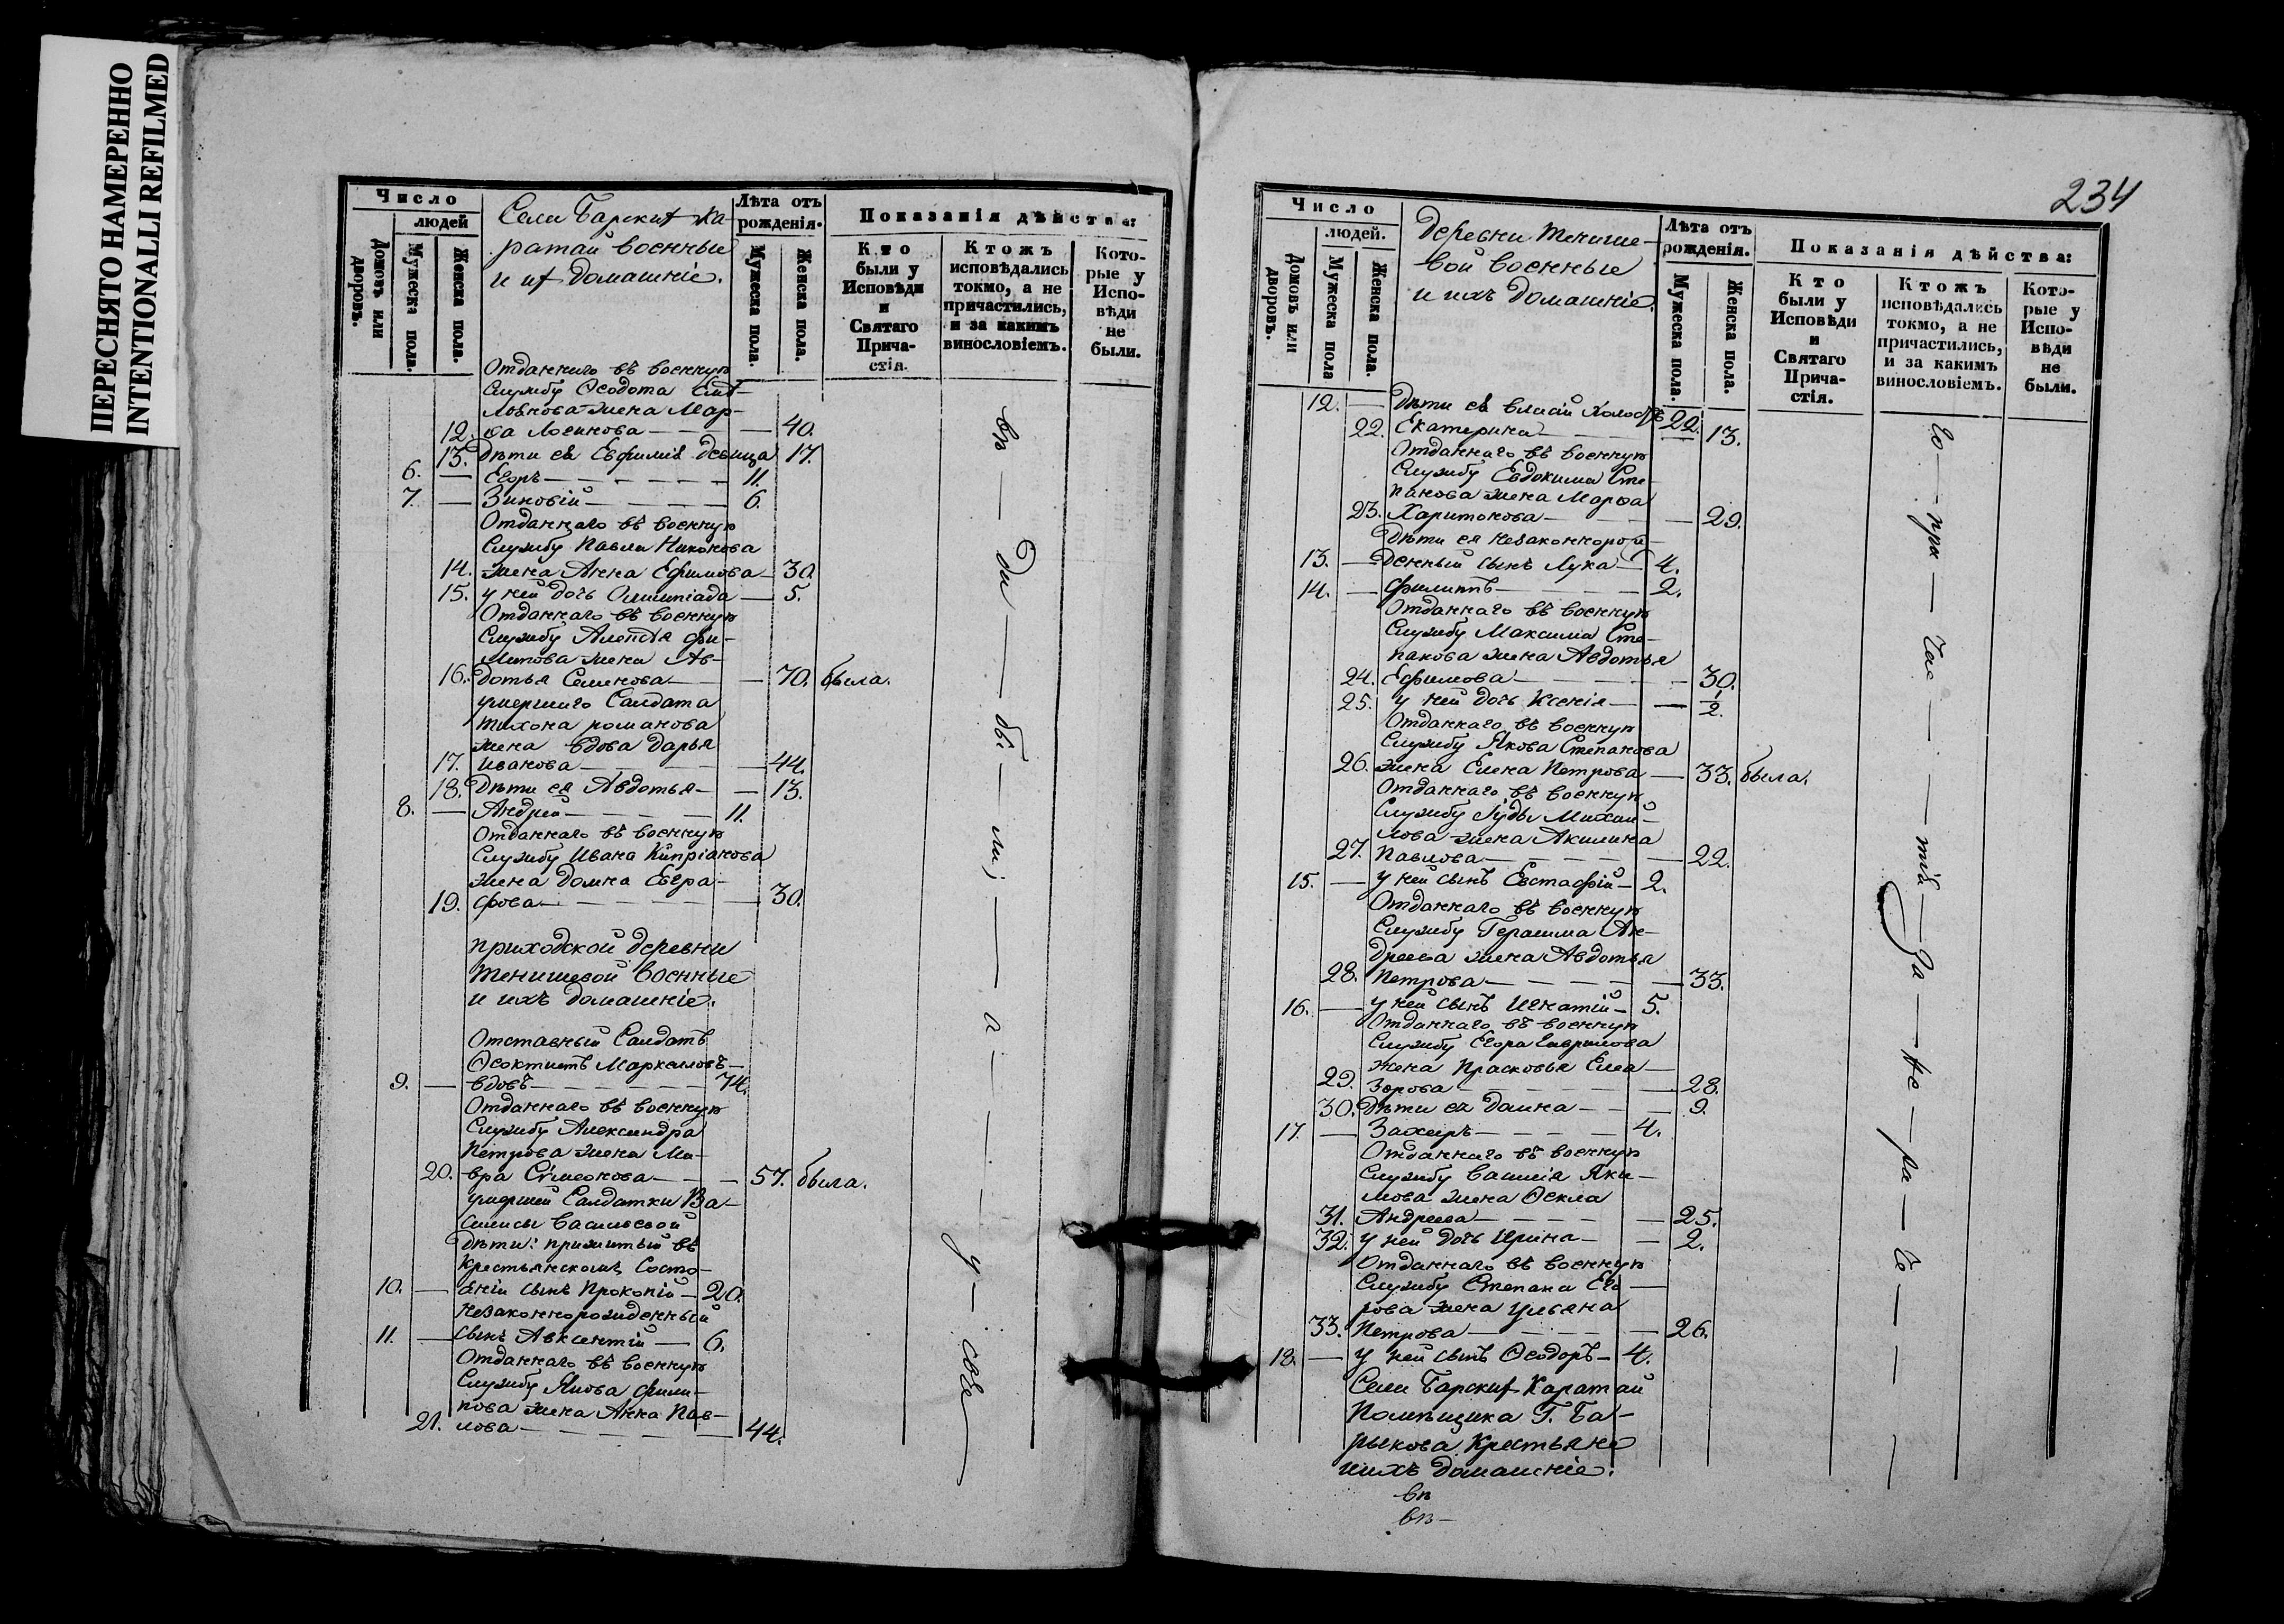 ПЕРЕСНЯТО НАМЕРЕННО
INTENTIONALLI REFILMED
Число
людей
Домовъ или дворовъ.
Мужеска пола.
Женска пола.
Села Барских Ка-
ратай военные
и их домашніе.
Лѣта отъ рожденія.
Мужеска пола.
Женска пола.
Показанія дѣйства:
Кто были у Исповѣди и Святаго Прича- стія.
Ктожъ исповѣдались токмо, а не причастились, и за какимъ винословіемъ.
Кото- рые у Испо- вѣди не были.
Отданнаго въ военную
службу Ѳеодота
жена Мар-
12. ѳа Логинова — — 40.
13. Дѣти ея Евфимія девица 17.
6. — Егоръ — 11.
7. — Зиновій — 6.
Отданнаго въ военную
службу Павла Никонова
14. жена Анна Ефимова — 30.
15. у ней дочь Олимпіада — 5.
Отданнаго въ военную
службу Алексѣя Фи-
жена Ав-
16. дотья Семенова — — 70. была.
умершаго Салдата
Тихона романова
жена вдова Дарья
17. Иванова — — 44.
18. Дѣти ея Авдотья — — 13.
8. — Андрей — 11.
Отданнаго въ военную
службу Ивана Кипріанова
жена Домна Евгра-
19. фова — — 30.
приходской деревни
Тенишевой военные
и ихъ домашніе.
Отставный Салдатъ
Ѳеоктистъ Маркеловъ —
9. — вдовъ — 74.
Отданнаго въ военную
службу Александра
Петрова жена Ма-
20. вра Сѵмеонова — — 57. была.
умершей Салдатки Ва-
силисы Васильевой
дѣти: прижитый въ
крестьянскомъ Состо-
10. — яніи сынъ Прокопій — 20.
незаконнорожденный
11. — сынъ Авксентій — 6.
Отданнаго въ военную
службу Якова Фили-
пова жена Анна Пав-
21. лова — — 44.
234
Число
людей.
Домовъ или дворовъ.
Мужеска пола
Женска пола.
Деревни Тенише-
вой военные
и ихъ домашніе.
Лѣта отъ рожденія.
Мужеска пола.
Женска пола.
Показанія дѣйства:
Кто были у Исповѣди и Святаго Прича- стія.
Ктожъ исповѣдались токмо, а не причастились, и за какимъ винословіемъ.
Кото- рые у Испо- вѣди не были.
12. — Дѣти ея Власій холостъ 22.
22. Екатерина — — 13.
Отданнаго въ военную
службу Евдокима Сте-
панова жена Марѳа
23. Харитонова — — 29.
Дѣти ея незаконнорож-
13. — денный сынъ Лука — 4.
14. — Филиппъ — 2.
Отданнаго въ военную
службу Максима Сте-
панова жена Авдотья
24. Ефимова — — 30.
25. у ней дочь Ксенія — — 1/2.
Отданнаго въ военную
службу Якова Степанова
26. жена Елена Петрова — 33. была.
Отданнаго въ военную
службу Іуды Михай-
лова жена Акилина
27. Павлова — — 22.
15. — у ней сынъ Евстафій — 2.
Отданнаго въ военную
службу Герасима Ан-
дреева жена Авдотья
28. Петрова — — 33.
16. — у ней сынъ Игнатій — 5.
Отданнаго въ военную
службу Егора Гаврилова
жена Прасковья Елеа-
29. зарова — — 28.
30. Дѣти ея Домна — — 9.
17. — Захаръ — 4.
Отданнаго въ военную
службу Василія Яки-
мова жена Ѳекла
31. Андреева — — 25.
32. у ней дочь Ирина — — 2.
Отданнаго въ военную
службу Степана Его-
рова жена Ульяна
33. Петрова — — 26.
18. — у ней сынъ Ѳеодоръ — 4.
Села Барских Каратай
Помѣщика Г. Ба-
рыкова Крестьяне
и ихъ домашніе.